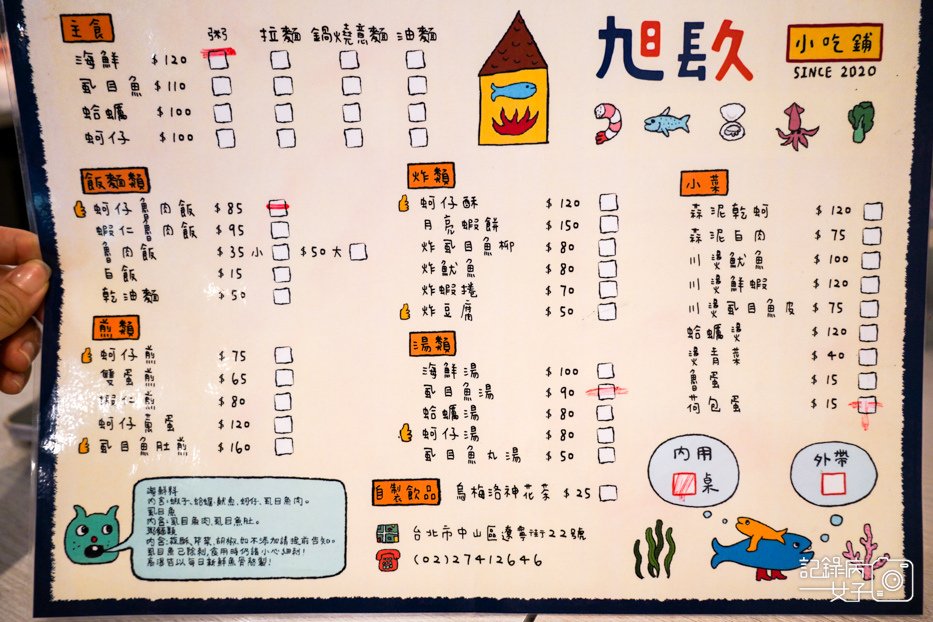 主食 粥 拉麵 鍋燒意麵 油麵
海鮮 $120
虱目魚 $110
蛤蠣 $100
蚵仔 $100
旭 镹
小吃鋪
SINCE 2020
飯麵類
蚵仔魯肉飯 $85
蝦仁魯肉飯 $95
魯肉飯 $35 小 $50 大
白飯 $15
乾油麵 $50
煎類
蚵仔煎 $75
雙蛋煎 $65
蝦仁煎 $80
蚵仔蔥蛋 $120
虱目魚肚煎 $160
炸類
蚵仔酥 $120
月亮蝦餅 $150
炸虱目魚柳 $80
炸魷魚 $80
炸蝦捲 $70
炸豆腐 $50
湯類
海鮮湯 $100
虱目魚湯 $90
蛤蠣湯 $80
蚵仔湯 $80
虱目魚丸湯 $50
自製飲品 烏梅洛神花茶 $25
小菜
蒜泥乾蚵 $120
蒜泥白肉 $75
川燙魷魚 $100
川燙鮮蝦 $120
川燙虱目魚皮 $75
蛤蠣燙 $120
燙青菜 $40
魯蛋 $15
荷包蛋 $15
內用
桌
外帶
海鮮料
內容:蝦子、蛤蠣、魷魚、蚵仔、虱目魚肉。
虱目魚
內容:虱目魚肉、虱目魚肚。
內容:蒜酥、芹菜、胡椒,如不添加請提前告知。
虱目魚已除刺,食用時仍請小心細刺!
台北市中山區遼寧街22號
(02)27412646
記錄病
女子